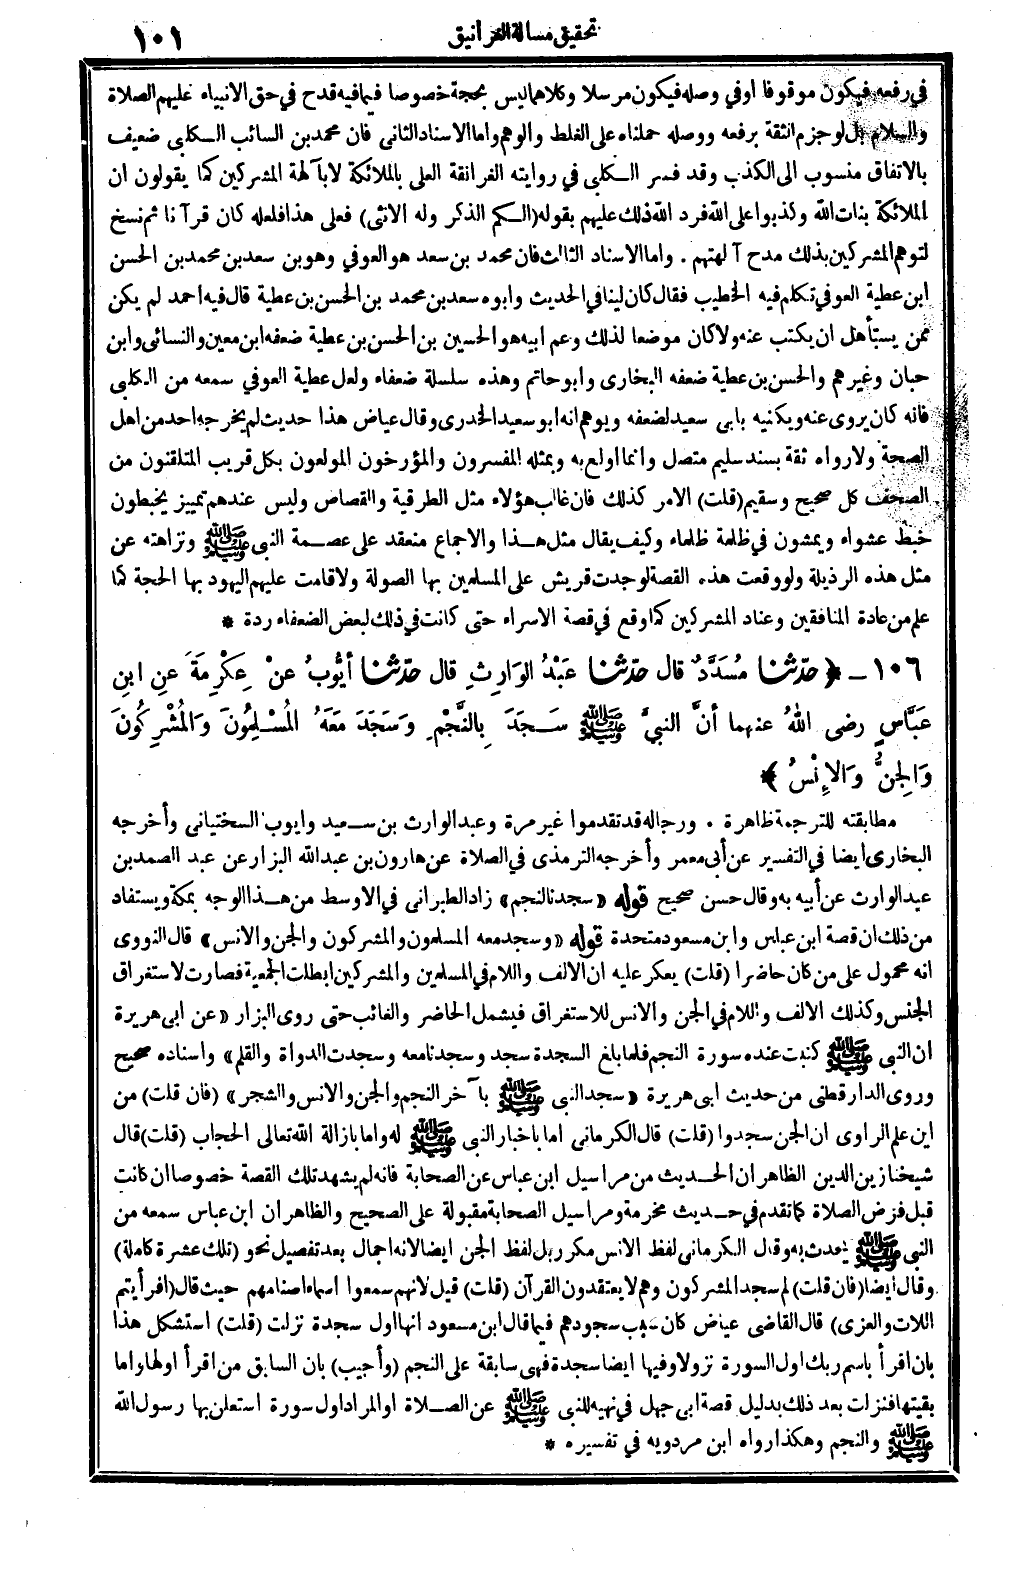 تحقيق مسألة الغرانيق
١٠١
في رفعه فيكون موقوفا أو في وصله فيكون مرسلا وكلاهما ليس بحجة خصوصا فيما فيه قدح في حق الانبياء عليهم الصلاة
والسلام بل لو جزم الثقة برفعه ووصله حملناه على الغلط والوهم واما الاسناد الثاني فان محمد بن السائب الكلبي ضعيف
بالاتفاق منسوب الى الكذب وقد فسر الكلبي في روايته الغرانقة العلى بالملائكة لا بآلهة المشركين كما يقولون ان
الملائكة بنات الله وكذبوا على الله فرد الله ذلك عليهم بقوله (الكم الذكر وله الانثى) فعلى هذا فلعله كان قرآنا ثم نسخ
لتوهم المشركين بذلك مدح آلهتهم . واما الاسناد الثالث فان محمد بن سعد هو العوفي وهو بن سعد بن محمد بن الحسن
ابن عطية العوفي تكلم فيه الخطيب فقال كان لينا في الحديث وابوه سعد بن محمد بن الحسن بن عطية قال فيه احمد لم يكن
ممن يستأهل ان يكتب عنه ولا كان موضعا لذلك وعم ابيه هو الحسين بن الحسن بن عطية ضعفه ابن معين والنسائى وابن
حبان وغيرهم والحسن بن عطية ضعفه البخارى وابو حاتم وهذه سلسلة ضعفاء ولعل عطية العوفي سمعه من الكلبى
فانه كان يروى عنه ويكنيه بابى سعيد لضعفه ويوهم انه ابو سعيد الخدرى وقال عياض هذا حديث لم يخرجه احد من اهل
الصحة ولا رواه ثقة بسند سليم متصل وانما اولع به وبمثله المفسرون والمؤرخون المولعون بكل قريب المتلقنون من
الصحف كل صحيح وسقيم (قلت) الامر كذلك فان غالب هؤلاء مثل الطرقية والقصاص وليس عندهم تمييز يخبطون
خبط عشواء ويمشون في ظلمة ظلماء وكيف يقال مثل هذا والاجماع منعقد على عصمة النبى ﷺ ونزاهته عن
مثل هذه الرذيلة ولو وقعت هذه القصة لوجدت قريش على المسلمين بها الصولة ولاقامت عليهم اليهود بها الحجة كما
علم من عادة المنافقين وعناد المشركين كما وقع في قصة الاسراء حتى كانت في ذلك لبعض الضعفاء ردة *
١٠٦ - ﴿ حدّثنا مُسَدَّدٌ قال حدّثنا عَبْدُ الوَارِثِ قال حدّثنا أيُّوبُ عنْ عِكْرِمَةَ عنِ ابنِ
عَبَّاسٍ رضى اللهُ عنهما أنَّ النبيَّ ﷺ سَجَدَ بِالنَّجْمِ وَسَجَدَ مَعَهُ المُسْلِمُونَ وَالمُشْرِكُونَ
وَالجِنُّ وَالإِنْسُ ﴾ *
مطابقته للترجمة ظاهرة . ورجاله قد تقدموا غير مرة وعبد الوارث بن سعيد وايوب السختيانى وأخرجه
البخارى أيضا في التفسير عن أبى معمر وأخرجه الترمذى في الصلاة عن هارون بن عبد الله البزار عن عبد الصمد بن
عبد الوارث عن أبيه به وقال حسن صحيح قوله «سجد بالنجم» زاد الطبرانى في الاوسط من هذا الوجه بمكة ويستفاد
من ذلك ان قصة ابن عباس وابن مسعود متحدة قوله «وسجد معه المسلمون والمشركون والجن والانس» قال النووى
انه محمول على من كان حاضرا (قلت) يعكر عليه ان الالف واللام في المسلمين والمشركين ابطلت الجمعية فصارت لاستغراق
الجنس وكذلك الالف واللام في الجن والانس للاستغراق فيشمل الحاضر والغائب حتى روى البزار «عن ابى هريرة
ان النبى ﷺ كتبت عنده سورة النجم فلما بلغ السجدة سجد وسجدنا معه وسجدت الدواة والقلم» واسناده صحيح
وروى الدارقطنى من حديث ابى هريرة «سجد النبى ﷺ بآخر النجم والجن والانس والشجر» (فان قلت) من
اين علم الراوى ان الجن سجدوا (قلت) قال الكرمانى اما باخبار النبى ﷺ له واما بازالة الله تعالى الحجاب (قلت) قال
شيخنا زين الدين الظاهر ان الحديث من مراسيل ابن عباس عن الصحابة فانه لم يشهد تلك القصة خصوصا ان كانت
قبل فرض الصلاة كما تقدم في حديث مخرمة ومراسيل الصحابة مقبولة على الصحيح والظاهر ان ابن عباس سمعه من
النبى ﷺ يحدث به وقال الكرمانى لفظ الانس مكرر بل لفظ الجن ايضا لانه اجمال بعد تفصيل نحو (تلك عشرة كاملة)
وقال ايضا (فان قلت) لم سجد المشركون وهم لا يعتقدون القرآن (قلت) قيل لانهم سمعوا اسماء اصنامهم حيث قال (افرأيتم
اللات والعزى) قال القاضى عياض كان سبب سجودهم فيما قال ابن مسعود انها اول سجدة نزلت (قلت) استشكل هذا
بان اقرأ باسم ربك اول السورة نزولا وفيها ايضا سجدة فهى سابقة على النجم (وأجيب) بان السابق من اقرأ اولها واما
بقيتها فنزلت بعد ذلك بدليل قصة ابى جهل في نهيه للنبى ﷺ عن الصلاة او المراد اول سورة استعلن بها رسول الله
ﷺ والنجم وهكذا رواه ابن مردويه في تفسيره *